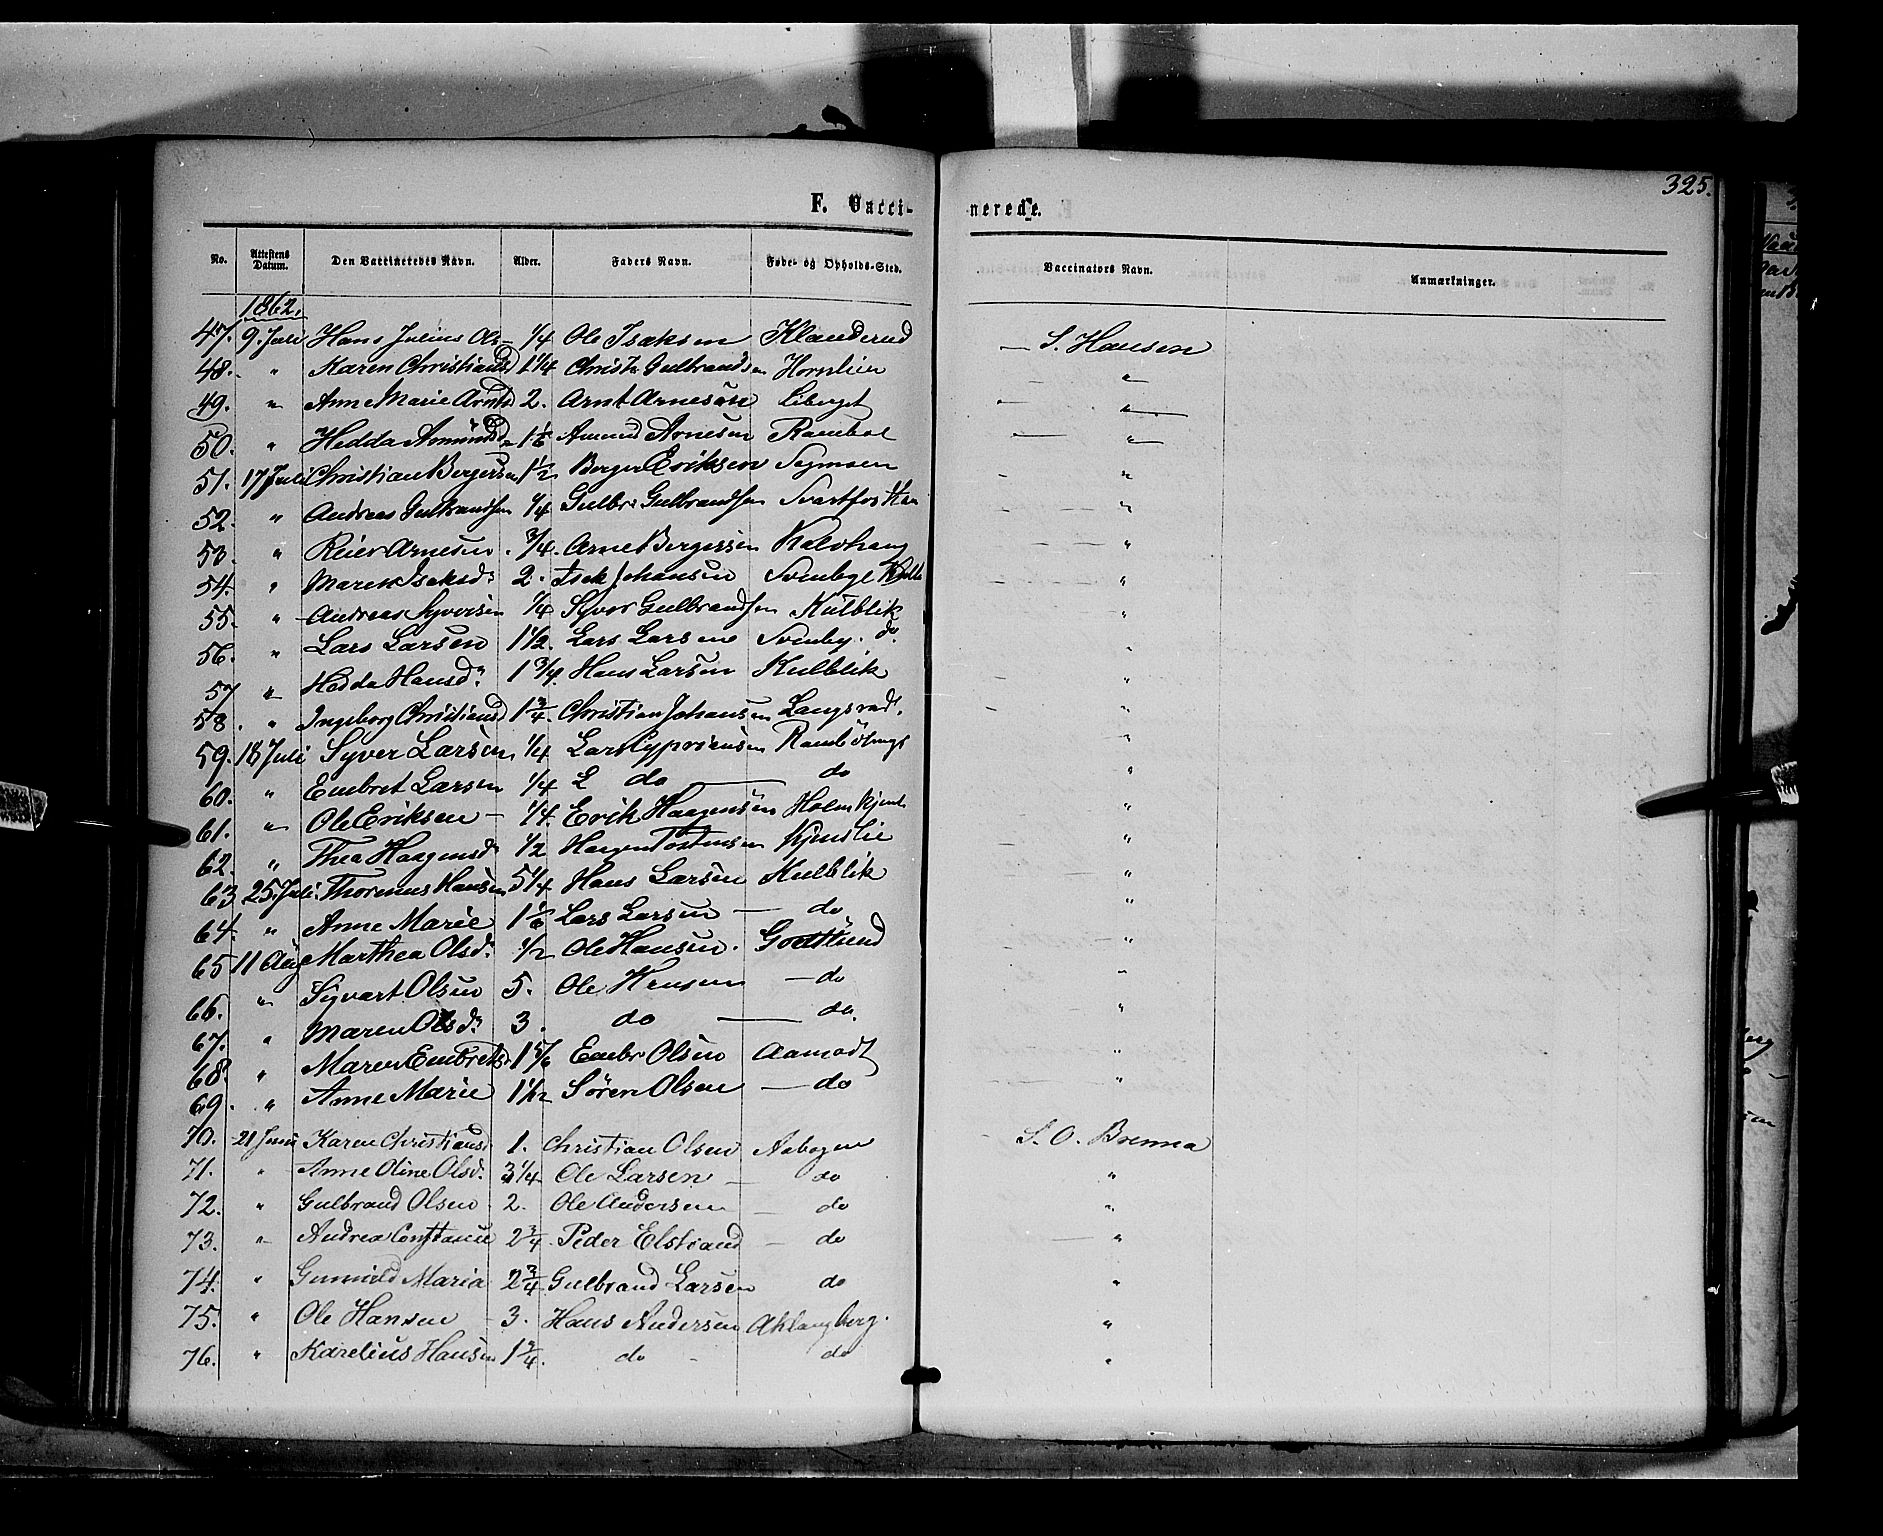 325.
F. Vacci- nerede.
No. Attestens Datum. Den Vaccineredes Navn. Alder. Faders Navn. Føde- og Opholds-Sted. Vaccinators Navn. Anmærkninger.
1862.
47. 9. Juli Hans Julius Ols- 1/4 Ole Isaksen Klanderud — S. Hansen
48. " Karen Christiansd 1 1/4 Christn Gulbrandsen Hornlien "
49. " Anne Marie Arntsd 2. Arnt Arnesen Liberget "
50. " Hedda Amundsdn 1 1/6 Amund Arnesen "
51. 17 Juli Christian Bergersen 1 1/2 Berger Eriksen "
52. " Andreas Gulbrandsen 1/4 Gulbr. Gulbrandsen "
53. " Reier Arnesen. 3/4. Arne Bergersen Kalvhaug "
54. " Maren Isaksd: 2. Isak Johansen "
55. " Andreas Syversen 1/4 Syver Gulbrandsen Kulblik "
56. " Lars Larsen 1 1/2. Lars Larsene Svenby. do "
57 " Hedda Hansd: 1 3/4. Hans Larsen Kulblik "
58. " Ingeborg Christiansd 1 3/4. Christian Johansen "
59. 18 Juli Syver Larsen 1/4 Lars Cypriensen "
60. " Embret Larsen 1/4 L do — do "
61. " Ole Eriksen - 1/4. Erik Haagensen "
62. " Thea Haagensd: 1/2 Haagen Tostensen Kjenslie "
63 25. Juli. Thorenus Hansen 5 1/4 Hans Larsen Kulblik "
64. " Anne Marie 1 1/6 Lars Larsen — do "
65 11 Aug Marthea Olsd: 1/2 Ole Hansen. Godtlund "
66. " Syvart Olsen 5. Ole Hansen — do "
67. " Maren Olsd: 3. do — do. "
68. " Maren Embretsd 1 5/6 Embr Olsen Aamodt "
69. " Anne Marie 1 1/12 Sören Olsen — do "
70. 21 Juni Karen Christiansd 1. Christian Olsen Aabogen S. O. Brenna
71. " Anne Oline Olsd. 3 1/4 Ole Larsen — do "
72. " Gulbrand Olsen 2. Ole Andersen — do "
73. " Andrea Constance 2 3/4. Peder Elstrand — do "
74. " Gunnild Maria 2 3/4 Gulbrand Larsen do "
75. " Ole Hansen - 3. Hans Andersen Aklangberg. "
76. " Karelius Hansen 1 3/4. do - do "